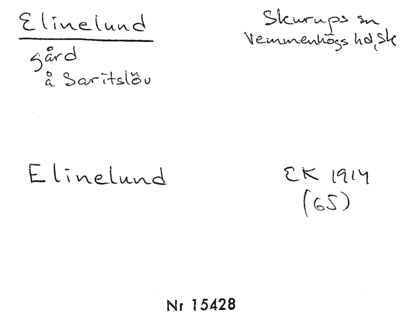 Elinelund
Skurups sn
Vemmenhögs hd, Sk
gård
å Saritslöv
Elinelund
EK 1914
(65)
Nr 15428